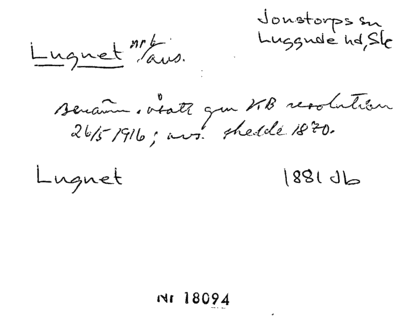 Jonstorps sn
Luggude hd, Sk
Lugnet nr 6 / avs.
Benämn. ersatt gm KB resolution
26/5 1916; avs. skedde 1870.
Lugnet 1881 Jb
Nr 18094